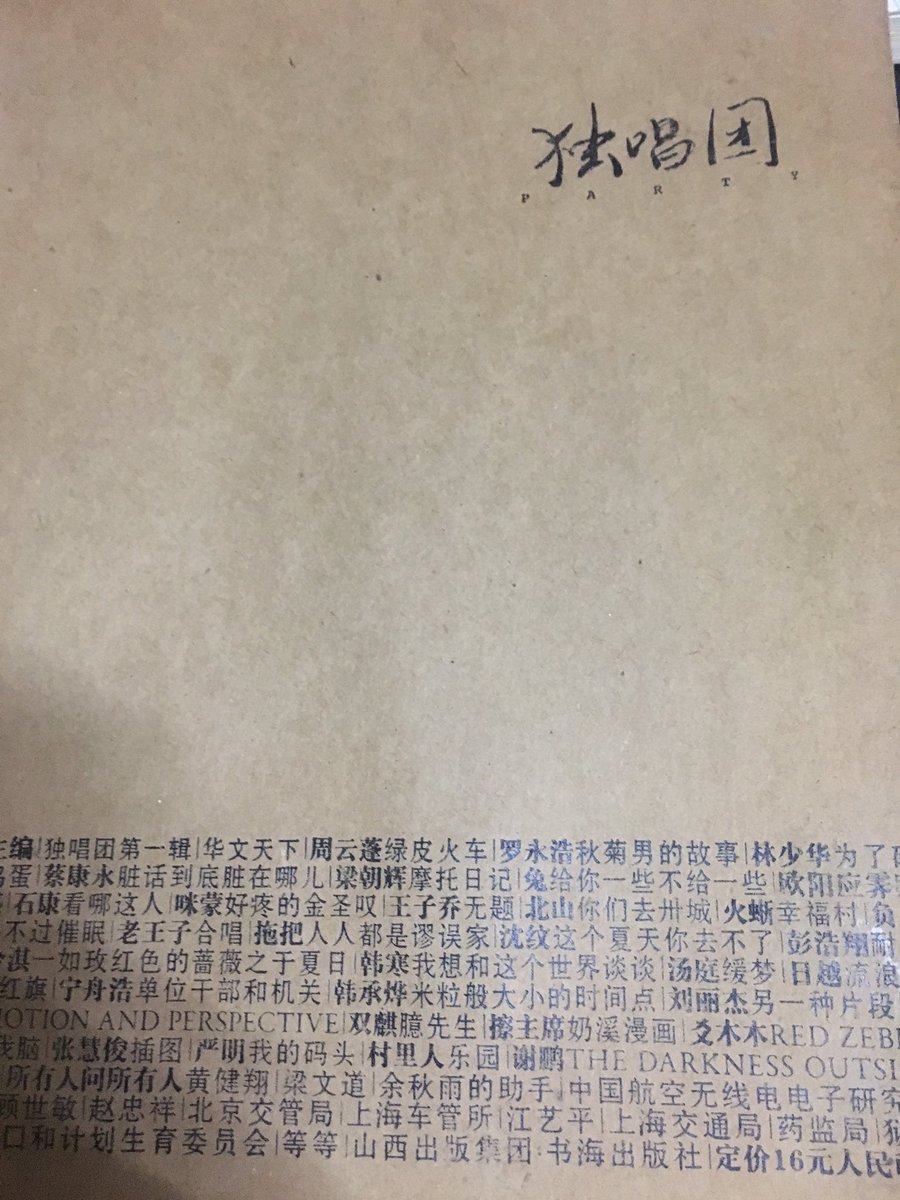 独唱团
PARTY
主编|独唱团第一辑|华文天下|周云蓬绿皮火车|罗永浩秋菊男的故事|林少华为了
蛋|蔡康永脏话到底脏在哪儿|梁朝辉摩托日记|兔给你一些不给一些|欧阳应霁
|石康看哪这人|咪蒙好疼的金圣叹|王子乔无题|北山你们去卅城|火蜥幸福村|
不过催眠|老王子合唱|拖把人人都是谬误家|沈纹这个夏天你去不了|彭浩翔耐
淇一如玫红色的蔷薇之于夏日|韩寒我想和这个世界谈谈|汤庭缓梦|日越流浪
红旗|宁舟浩单位干部和机关|韩承烨米粒般大小的时间点|刘丽杰另一种片段
OTION AND PERSPECTIVE|双麒臆先生|擦主席奶溪漫画|爻木木RED ZEB
我脑|张慧俊插图|严明我的码头|村里人乐园|谢鹏THE DARKNESS OUTSI
所有人问所有人黄健翔|梁文道|余秋雨的助手|中国航空无线电电子研究
顾世敏|赵忠祥|北京交管局|上海车管所|江艺平|上海交通局|药监局|
口和计划生育委员会|等等|山西出版集团·书海出版社|定价16元人民